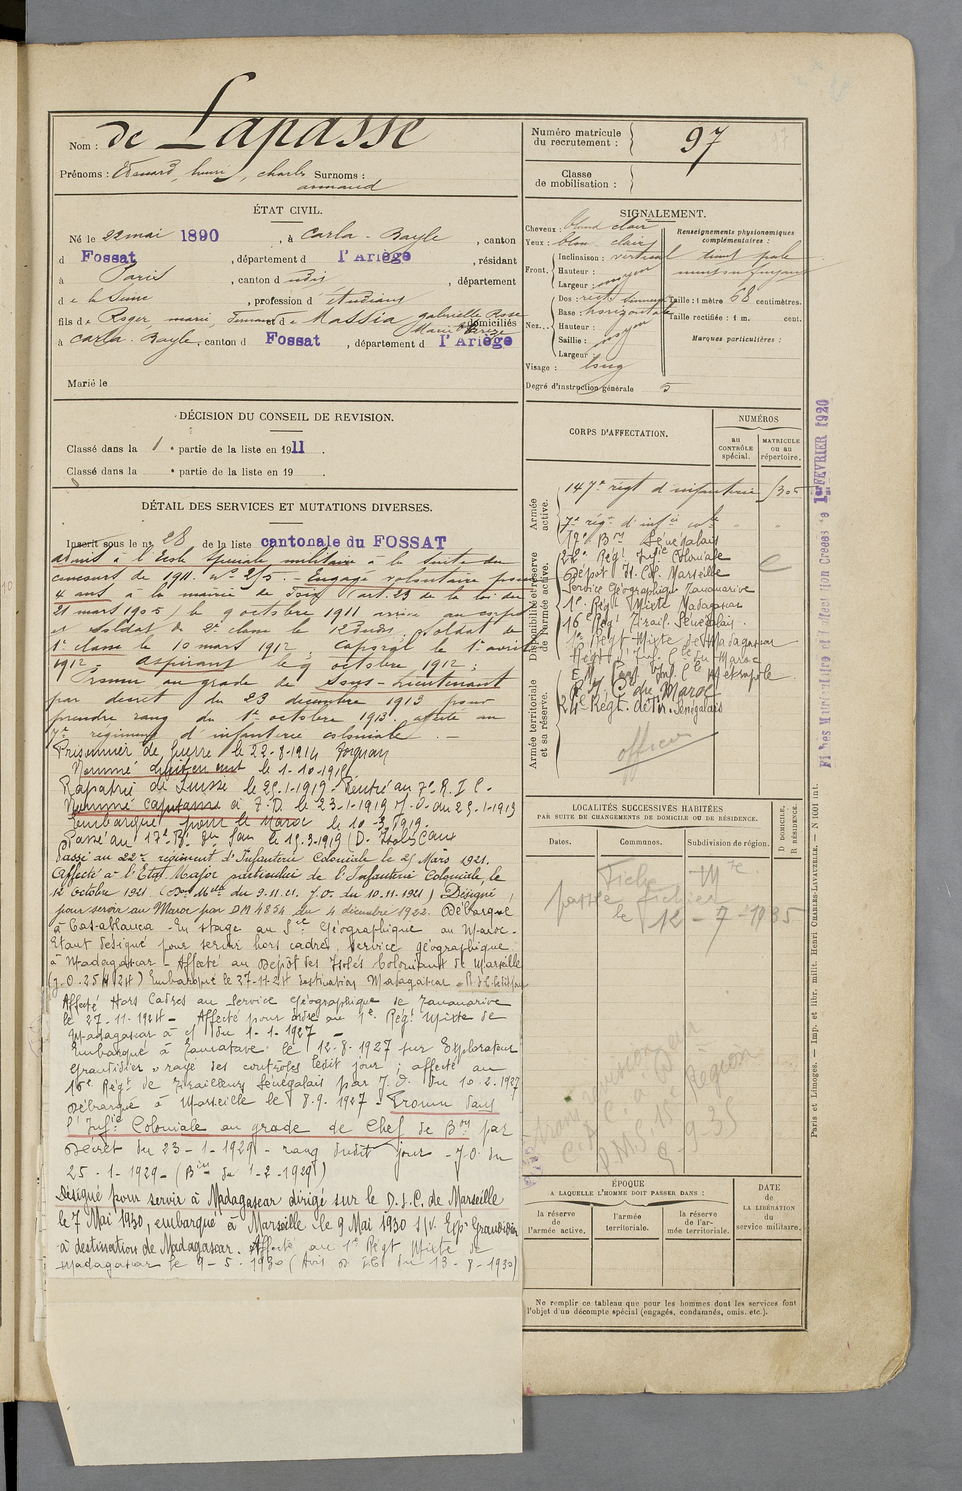 Nom : de Lapasse
Prénoms : Edouard, henri, charles Surnoms :
armand
ÉTAT CIVIL.
Né le 22 mai 1890, à Carla-Bayle, canton
d Fossat, département d l'Ariège, résidant
à Paris, canton d udis, département
d e la Seine, profession d'étudiant
fils de Roger, marie, et de Massia gabrielle Rose
domiciliés
à Carla-Bayle, canton d Fossat, département d l'Ariège
Marié le
DÉCISION DU CONSEIL DE REVISION.
Classé dans la 1e partie de la liste en 1911.
Classé dans la e partie de la liste en 19 .
DÉTAIL DES SERVICES ET MUTATIONS DIVERSES.
Inscrit sous le no 28 de la liste cantonale du FOSSAT
admis à l'Ecole Spéciale militaire à la suite du
concours de 1911. No 215. - Engagé volontaire pour
4 ans à la mairie de Foix (art. 23 de la loi du
21 mars 1905) le 9 octobre 1911 arrivé au corps
et soldat de 2e classe le 12 dudit, soldat de
1e classe le 10 mars 1912, Caporal le 1er avril
1912, aspirant le 9 octobre 1912;
Promu au grade de Sous-Lieutenant
par décret du 23 décembre 1913 pour
prendre rang du 1er octobre 1913. affecté au
7e régiment d'infanterie coloniale. -
Prisonnier de Guerre le 22-8-1914
Nommé le 1-10-1915
Rapatrié de Suisse le 25-1-1919 - Rentré au 7e R.I.C.
Nommé capitaine à T.D. le 23-1-1919 J.O. du 25-1-1919
Embarqué pour le Maroc le 10-3-1919.
Passé au 12e Bn le 15-3-1919
Passé au 22e régiment d'Infanterie Coloniale le 25 Mars 1921.
Affecté à l'Etat Major particulier de l'Infanterie Coloniale, le
12 octobre 1921. ( du 9.11.21. J.O. du 10.11.1921) Désigné
pour servir au Maroc par DM 4854 du 4 décembre 1922. Débarqué
à Casablanca - En stage au Sce Géographique au Maroc.
Etant désigné pour servir hors cadres, service géographique
à Madagascar - Affecté au Dépôt des Isolés Coloniaux de Marseille
Embarqué le 27-11-24 destination Madagascar
Affecté Hors Cadres au Service Géographique de Tananarive
le 27-11-1924 - Affecté pour ordre au 1e Régt Mixte de
Madagascar à du 1-1-1927 -
Embarqué à Tamatave le 12-8-1927 sur Explorateur
Grandidier, rayé des contrôles ledit jour; affecté au
16e Régt de Tirailleurs Sénégalais par J.O. du 10-2-1927
Débarqué à Marseille le 8-9-1927 - Promu dans
l'Infie Coloniale au grade de Chef de Bon par
Décret du 23-1-1929 - rang dudit jour - J.O. du
25-1-1929 - (Bin du 1-2-1929)
Désigné pour servir à Madagascar dirigé sur le D.I.C. de Marseille
le 7 Mai 1930, embarqué à Marseille le 9 Mai 1930 s/v. Expr Grandidier
à destination de Madagascar. Affecté au 1e Régt Mixte de
Madagascar le 9-5-1930 (Avis du 13-8-1930)
Numéro matricule
du recrutement : 97
Classe
de mobilisation :
SIGNALEMENT.
Cheveux : blond clair
Yeux : bleu clair
Front. Inclinaison : vertical
Hauteur :
Largeur : moyen
Nez. Dos : recti
Base : horizontale
Hauteur :
Saillie : moyen
Largeur :
Visage : long
Renseignements physionomiques
complémentaires :
teint pale
Taille : 1 mètre 68 centimètres.
Taille rectifiée : 1 m. cent.
Marques particulières :
Degré d'instruction générale 5
CORPS D'AFFECTATION.
NUMÉROS
au CONTRÔLE spécial.
MATRICULE ou au répertoire.
Armée active.
Disponibilité et réserve de l'armée active.
Armée territoriale et sa réserve.
147e régt d'infanterie 1305
7e régt d'infie cole
12e Bon Sénégalais
22e Régt Infie Coloniale
Dépôt Is. Col. Marseille
Service Géographique Tananarive
1e Régt Mixte Madagascar
16e Régt Tirail. Sénégalais.
1e Régt Mixte de Madagascar
Régt d'Inf. Cle du Maroc
E.M. Part. Inf. Cle Métropole.
R.I.C. du Maroc
24e Régt. de Tir. Sénégalais
officier
LOCALITÉS SUCCESSIVES HABITÉES
PAR SUITE DE CHANGEMENTS DE DOMICILE OU DE RÉSIDENCE.
Dates.
Communes.
Subdivision de région.
D DOMICILE, R RÉSIDENCE.
Fiche Mle
passée fichier
le 12-7-1935
15e Région
9-35
ÉPOQUE
A LAQUELLE L'HOMME DOIT PASSER DANS :
la réserve de l'armée active.
l'armée territoriale.
la réserve de l'armée territoriale.
DATE
de
LA LIBÉRATION
du
service militaire.
Ne remplir ce tableau que pour les hommes dont les services font
l'objet d'un décompte spécial (engagés, condamnés, omis, etc.).
1er FÉVRIER 1920
Paris et Limoges. — Imp. et libr. milit. Henri CHARLES-LAVAUZELLE. — N 1001 int.